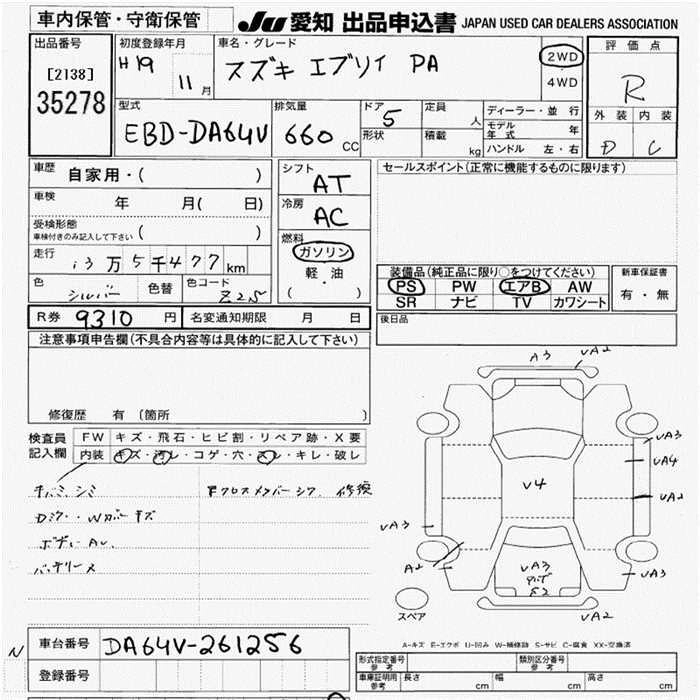 車内保管・守衛保管
JU 愛知 出品申込書 JAPAN USED CAR DEALERS ASSOCIATION
出品番号
[2138]
35278
初度登録年月
H19 11月
車名・グレード
スズキ エブリイ PA
2WD
4WD
評価点
R
外装 内装
D C
型式
EBD-DA64V
排気量
660 CC
ドア
5
形状
定員
人
積載
kg
ディーラー・並行
モデル年式 年
ハンドル 左・右
車歴
自家用・( )
車検 年 月( 日)
受検形態
車検付きのみ記入して下さい ( )
走行
13万5千477km
色
シルバー
色替
色コード
Z2S
シフト
AT
冷房
AC
燃料
ガソリン
軽・油
( ・ )
セールスポイント(正常に機能するものに限ります)
装備品(純正品に限り○をつけてください)
PS PW エアB AW
SR ナビ TV カワシート
新車保証書
有・無
R券 9310 円 名変通知期限 月 日
後日品
注意事項申告欄(不具合内容等は具体的に記入して下さい)
修復歴 有 (箇所 )
検査員記入欄
FW キズ・飛石・ヒビ割・リペア跡・X要
内装 キズ・汚レ・コゲ・穴・スレ・キレ・破レ
シミ
キズ
バッテリー
修復
A3 UA2
UA3
UA4
UA2
V4
UA3
A2
UA3
UA3
UA2
スペア
A-キズ E-エクボ U-凹み W-補修跡 S-サビ C-腐食 XX-交換済
N
車台番号 DA64V-261256
登録番号
形式指定番号
参考
類別区分番号
参考
車庫証明用
参考
長さ cm 幅 cm 高さ cm